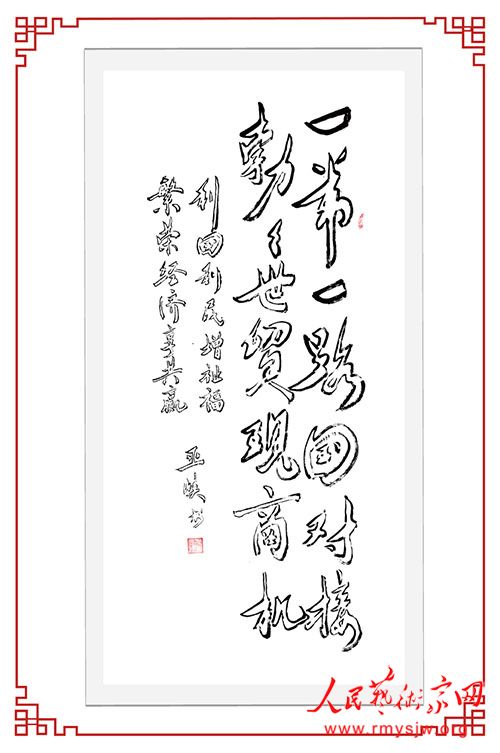 一带一路国对接
勃々世貿現商机
利国利民增祉福
繁荣经济享共赢
人民藝術家网
www.rmysjw.org